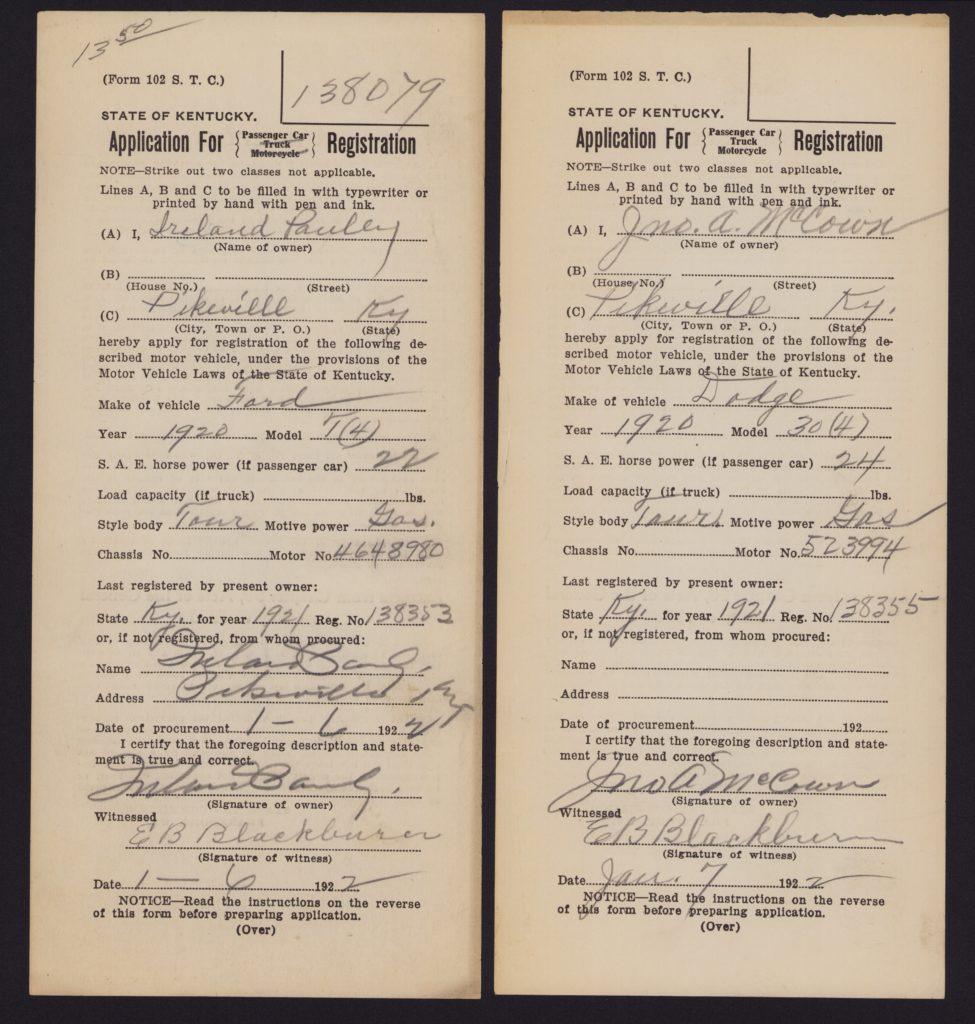 13 50
(Form 102 S. T. C.)
138079
STATE OF KENTUCKY.
Application For { Passenger Car Truck Motorcycle } Registration
NOTE—Strike out two classes not applicable.
Lines A, B and C to be filled in with typewriter or
printed by hand with pen and ink.
(A) I, Ireland Pauley
(Name of owner)
(B)
(House No.) (Street)
(C) Pikeville Ky
(City, Town or P. O.) (State)
hereby apply for registration of the following de-
scribed motor vehicle, under the provisions of the
Motor Vehicle Laws of the State of Kentucky.
Make of vehicle Ford
Year 1920 Model T(4)
S. A. E. horse power (if passenger car) 22
Load capacity (if truck) lbs.
Style body Tour Motive power Gas.
Chassis No. Motor No. 4648980
Last registered by present owner:
State Ky. for year 1921 Reg. No. 138353
or, if not registered, from whom procured:
Name
Address Pikeville Ky
Date of procurement 1-6 1922
I certify that the foregoing description and state-
ment is true and correct.
(Signature of owner)
Witnessed
E B Blackburn
(Signature of witness)
Date 1-6 1922
NOTICE—Read the instructions on the reverse
of this form before preparing application.
(Over)
(Form 102 S. T. C.)
STATE OF KENTUCKY.
Application For { Passenger Car Truck Motorcycle } Registration
NOTE—Strike out two classes not applicable.
Lines A, B and C to be filled in with typewriter or
printed by hand with pen and ink.
(A) I, Jno. A. McCown
(Name of owner)
(B)
(House No.) (Street)
(C) Pikeville Ky.
(City, Town or P. O.) (State)
hereby apply for registration of the following de-
scribed motor vehicle, under the provisions of the
Motor Vehicle Laws of the State of Kentucky.
Make of vehicle Dodge
Year 1920 Model 30(4)
S. A. E. horse power (if passenger car) 24
Load capacity (if truck) lbs.
Style body Tour. Motive power Gas
Chassis No. Motor No. 523994
Last registered by present owner:
State Ky. for year 1921 Reg. No. 138355
or, if not registered, from whom procured:
Name
Address
Date of procurement 192
I certify that the foregoing description and state-
ment is true and correct.
Jno A McCown
(Signature of owner)
Witnessed
E B Blackburn
(Signature of witness)
Date Jan. 7 1922
NOTICE—Read the instructions on the reverse
of this form before preparing application.
(Over)